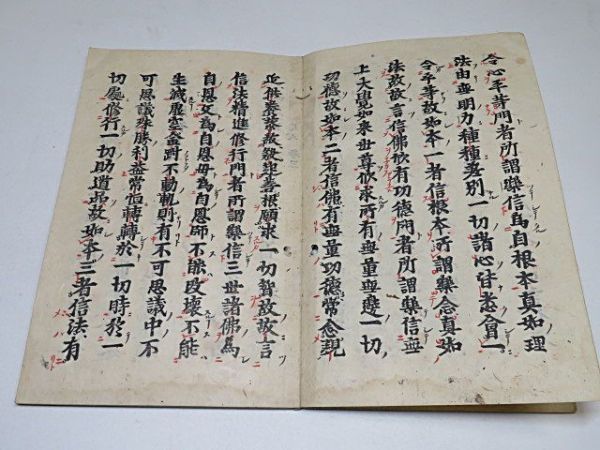 令心平等門者所謂樂信為自根本真如理
法由無明力種種差別一切諸心皆悉會一
令平等故如本一者信根本所謂樂念真如
法故故言信佛欲有功德門者所謂樂信無
上大覺如來世尊欲求所有無量無邊一切
功德故如本二者信佛有無量功德常念親
近供養恭敬發起善根願求一切智故故言
信法精進修行門者所謂樂信三世諸佛為
自恩父為自恩母為自恩師不能改壞不能
生滅虛空金剛不動軌則有不可思議中不
可思議殊勝利益常恒轉轉於一切時於一
切處修行一切助道品故如本三者信法有